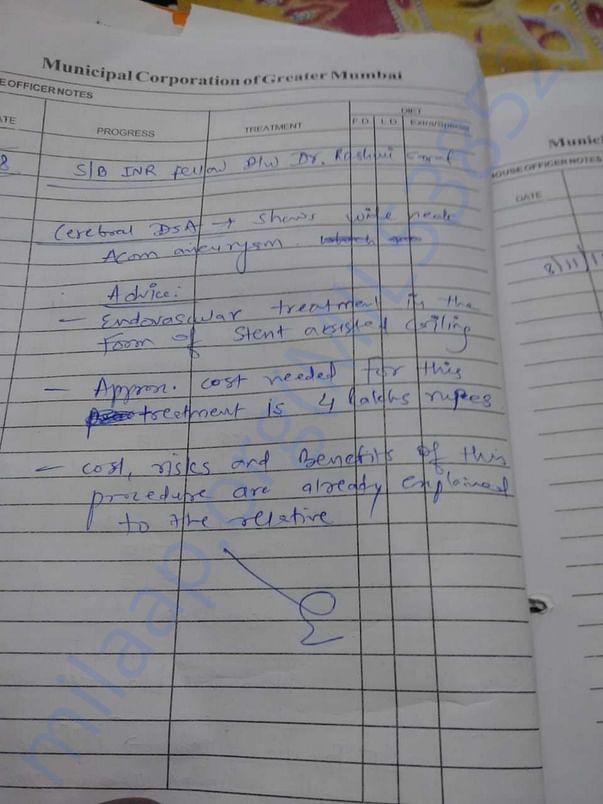 Municipal Corporation of Greater Mumbai
E OFFICER NOTES
ATE
PROGRESS
TREATMENT
DIET
F.D.
L.D.
Extra/Special
8
S/B INR fellow D/W Dr. Rashmi
Cerebral DSA → shows wide neck
Acom aneurysm.
Advice:
- Endovascular treatment in the
Form of stent assisted coiling
- Approx. cost needed for this
treetment is 4 lakhs rupes
- cost, risks and Benefits of this
procedure are already explained
to the relative
Munici
HOUSE OFFICER NOTES
DATE
8/11/1
milaap.org